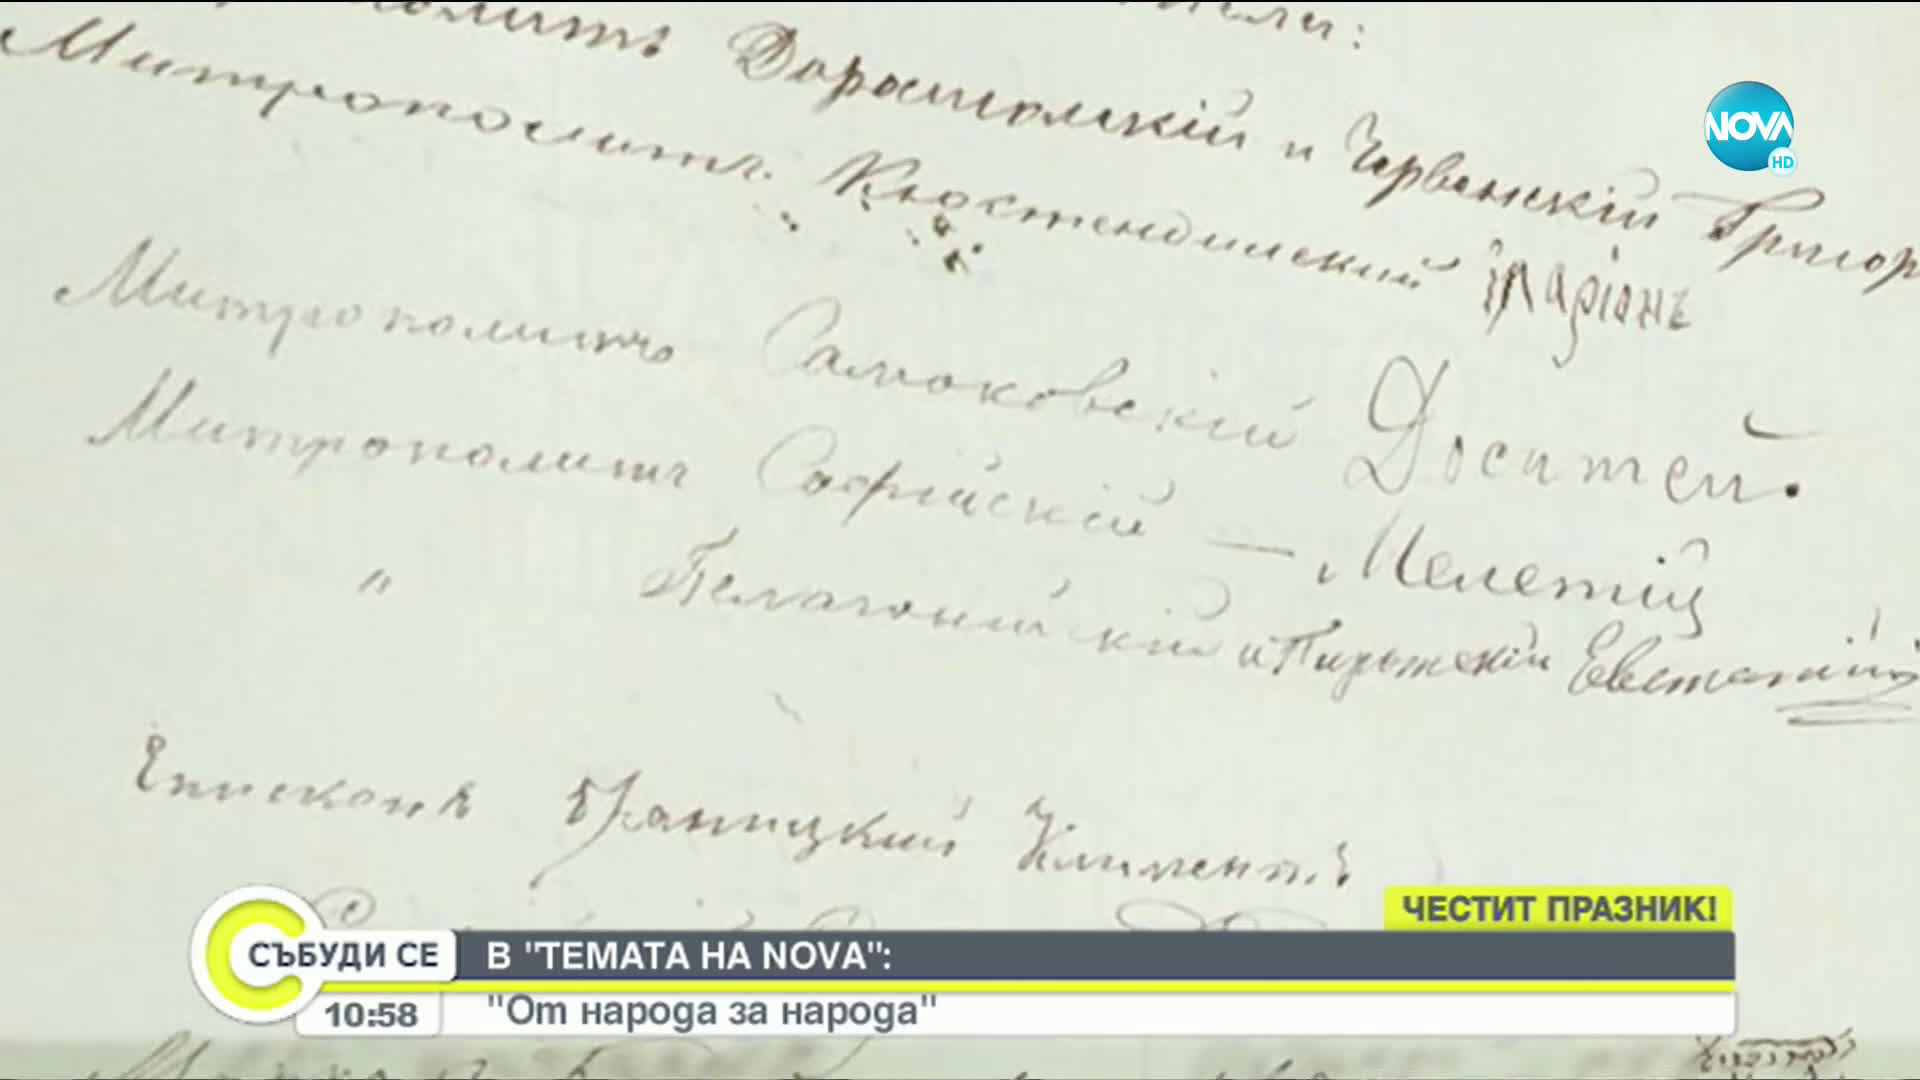 Митрополитъ Доростолскій и Червенскій Григор
Митрополитъ Кюстендилский Іларіонъ
NOVA
HD
Митрополитъ Самоковскій Доситей.
Митрополитъ Софійскій – Мелетій
" Пелагонийскій и Пиротскій Евстатій
Епископъ Браницкий Климентъ
ЧЕСТИТ ПРАЗНИК!
СЪБУДИ СЕ
В "ТЕМАТА НА NOVA":
10:58
"От народа за народа"